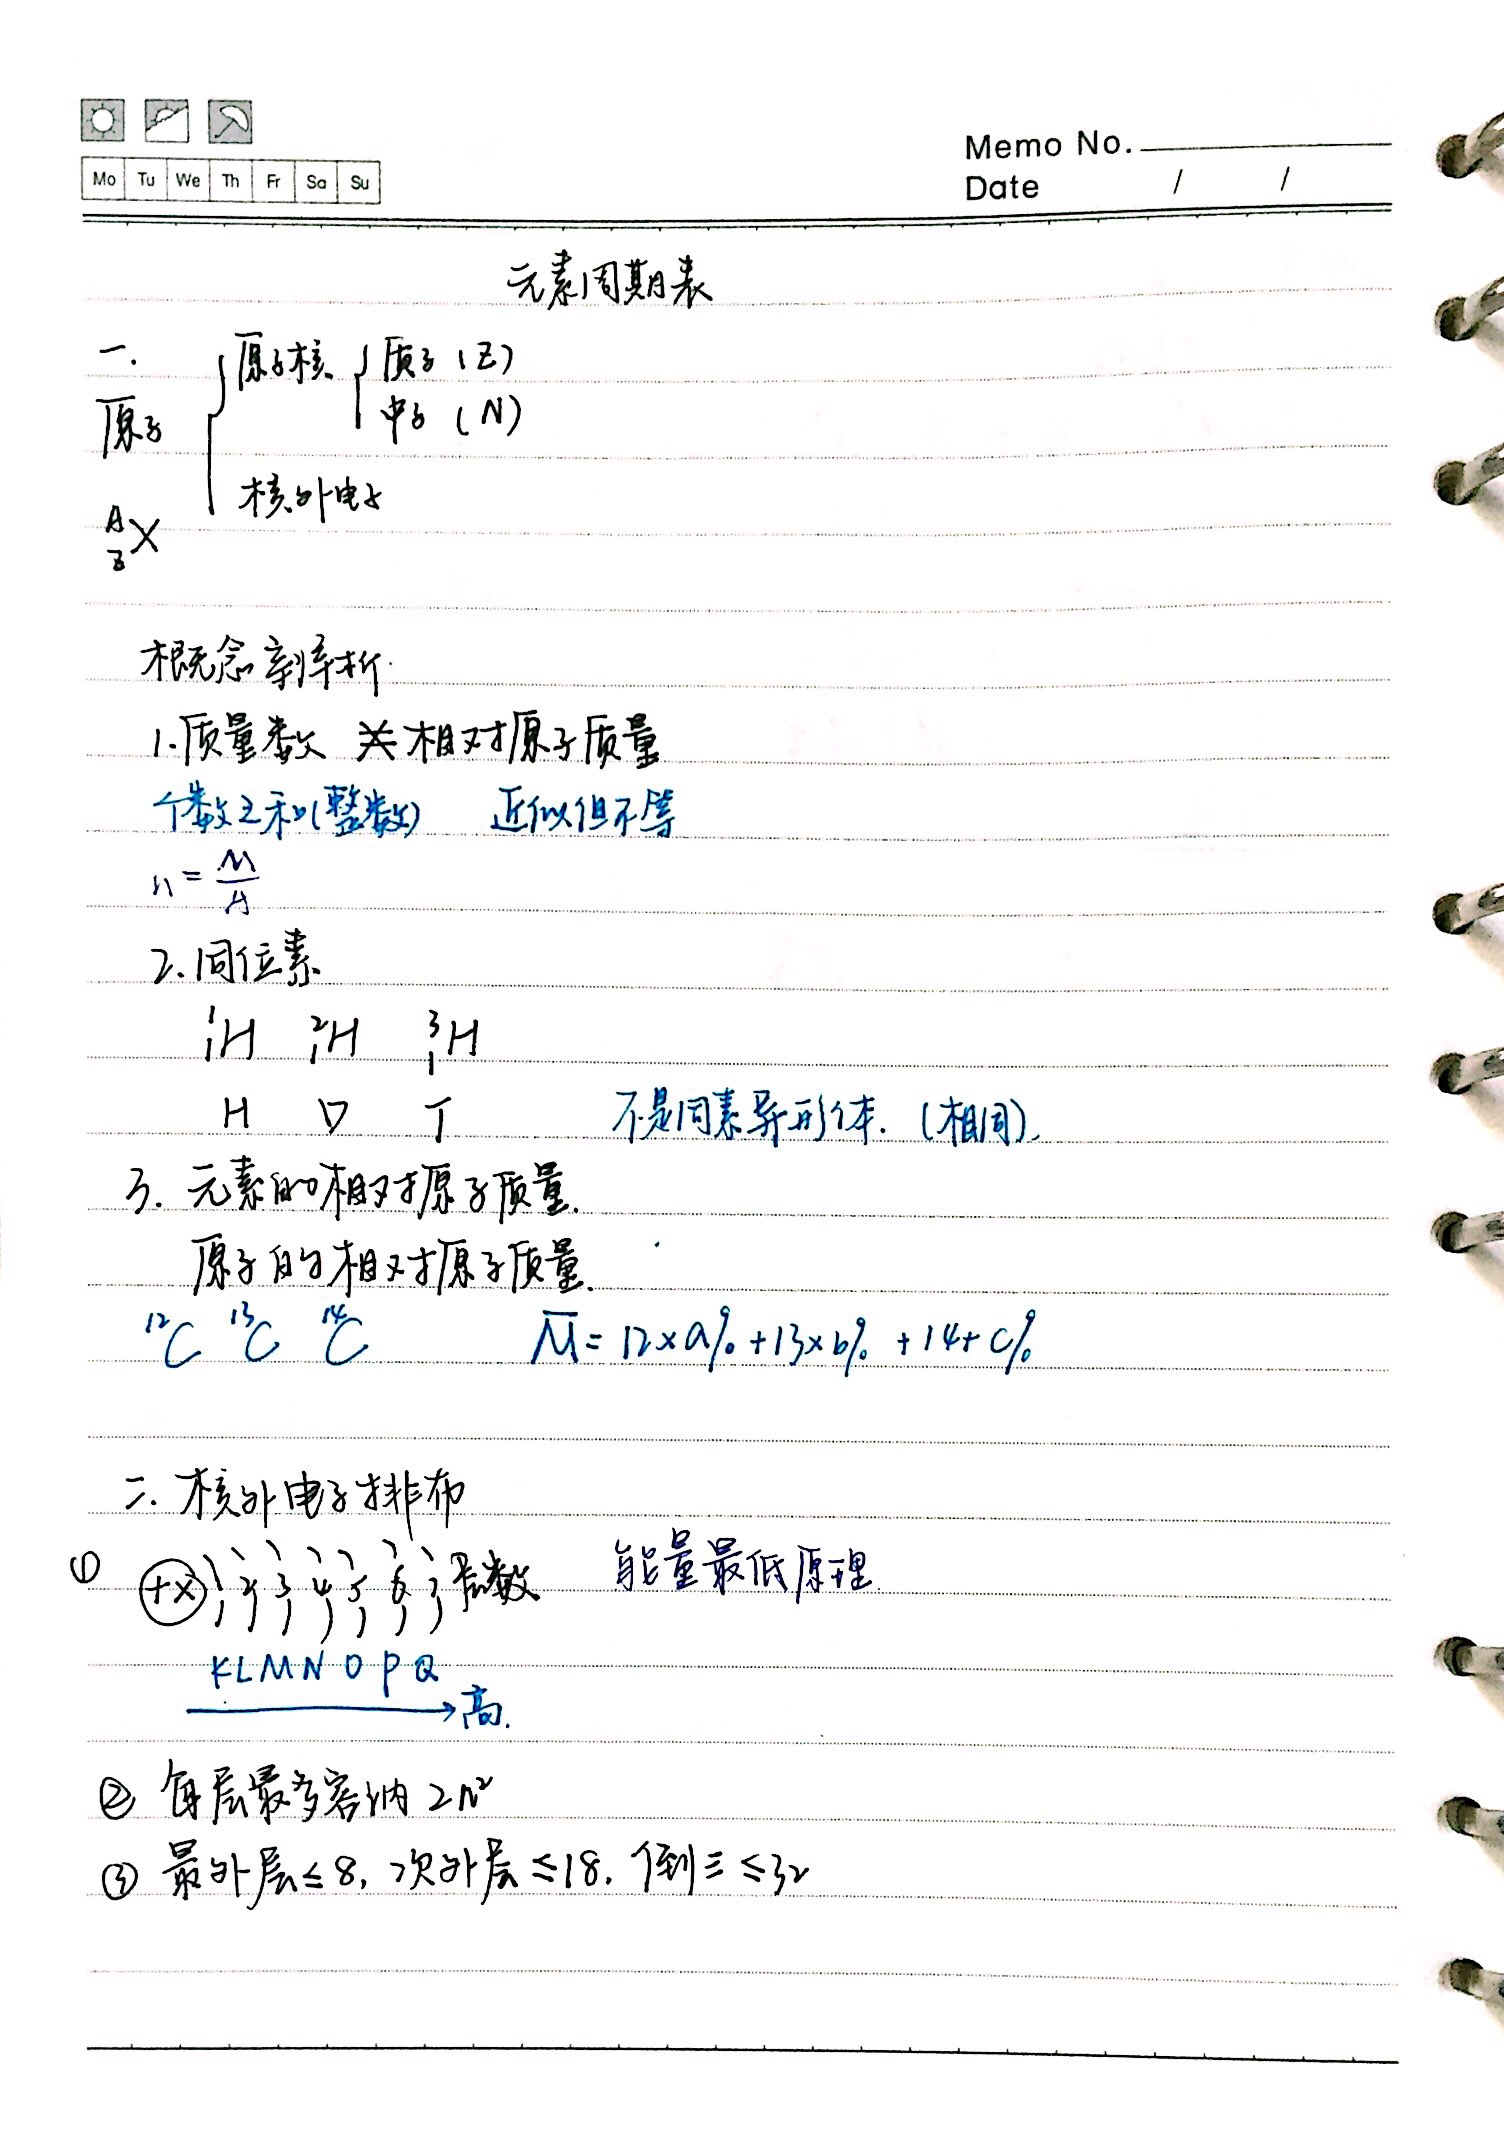 Mo Tu We Th Fr Sa Su
Memo No.
Date / /
元素周期表
一.
原子 { 原子核 { 质子 (Z)
中子 (N)
核外电子
A
Z X
概念剖析.
1.质量数 ≠ 相对原子质量
个数之和(整数) 近似但不等
n = M/A
2.同位素
¹₁H ²₁H ³₁H
H D T 不是同素异形体. (相同).
3. 元素的相对原子质量.
原子的相对原子质量.
¹²C ¹³C ¹⁴C M̅ = 12×a% + 13×b% + 14+c%
二.核外电子排布
① +X 1 2 3 4 5 6 7 层数 能量最低原理
K L M N O P Q
→高.
② 每层最多容纳 2n²
③ 最外层≤8, 次外层≤18, 倒三≤32